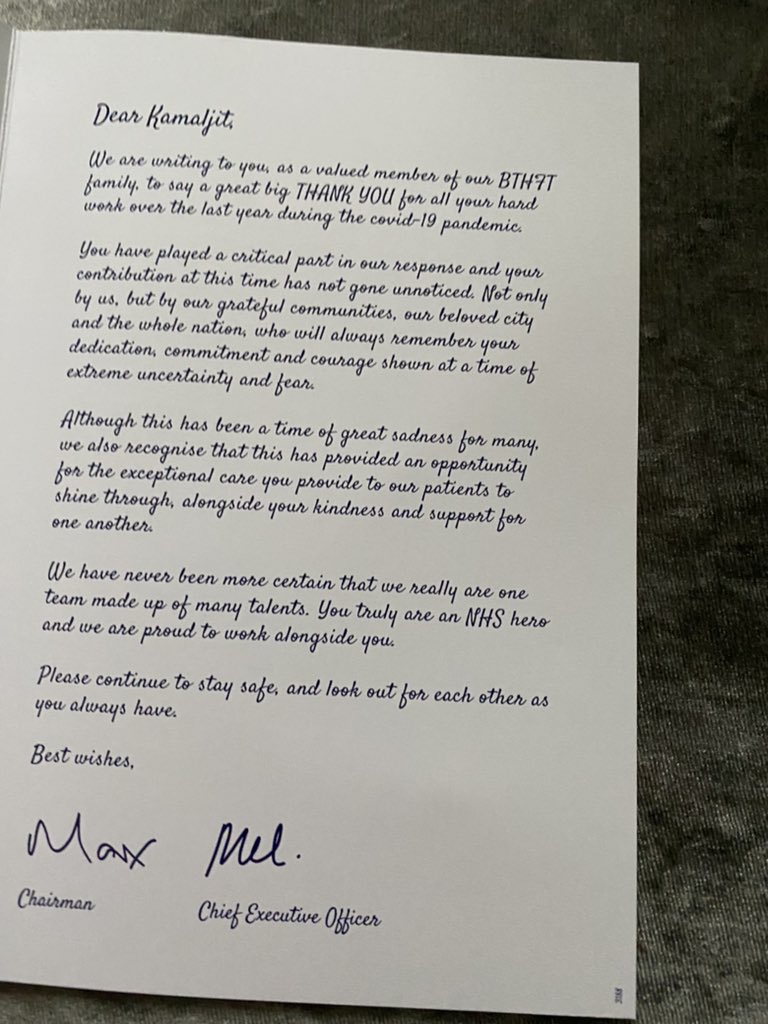 Dear Kamaljit,
We are writing to you, as a valued member of our BTHFT
family, to say a great big THANK YOU for all your hard
work over the last year during the covid-19 pandemic.
You have played a critical part in our response and your
contribution at this time has not gone unnoticed. Not only
by us, but by our grateful communities, our beloved city
and the whole nation, who will always remember your
dedication, commitment and courage shown at a time of
extreme uncertainty and fear.
Although this has been a time of great sadness for many,
we also recognise that this has provided an opportunity
for the exceptional care you provide to our patients to
shine through, alongside your kindness and support for
one another.
We have never been more certain that we really are one
team made up of many talents. You truly are an NHS hero
and we are proud to work alongside you.
Please continue to stay safe, and look out for each other as
you always have.
Best wishes,
Max Mel.
Chairman Chief Executive Officer